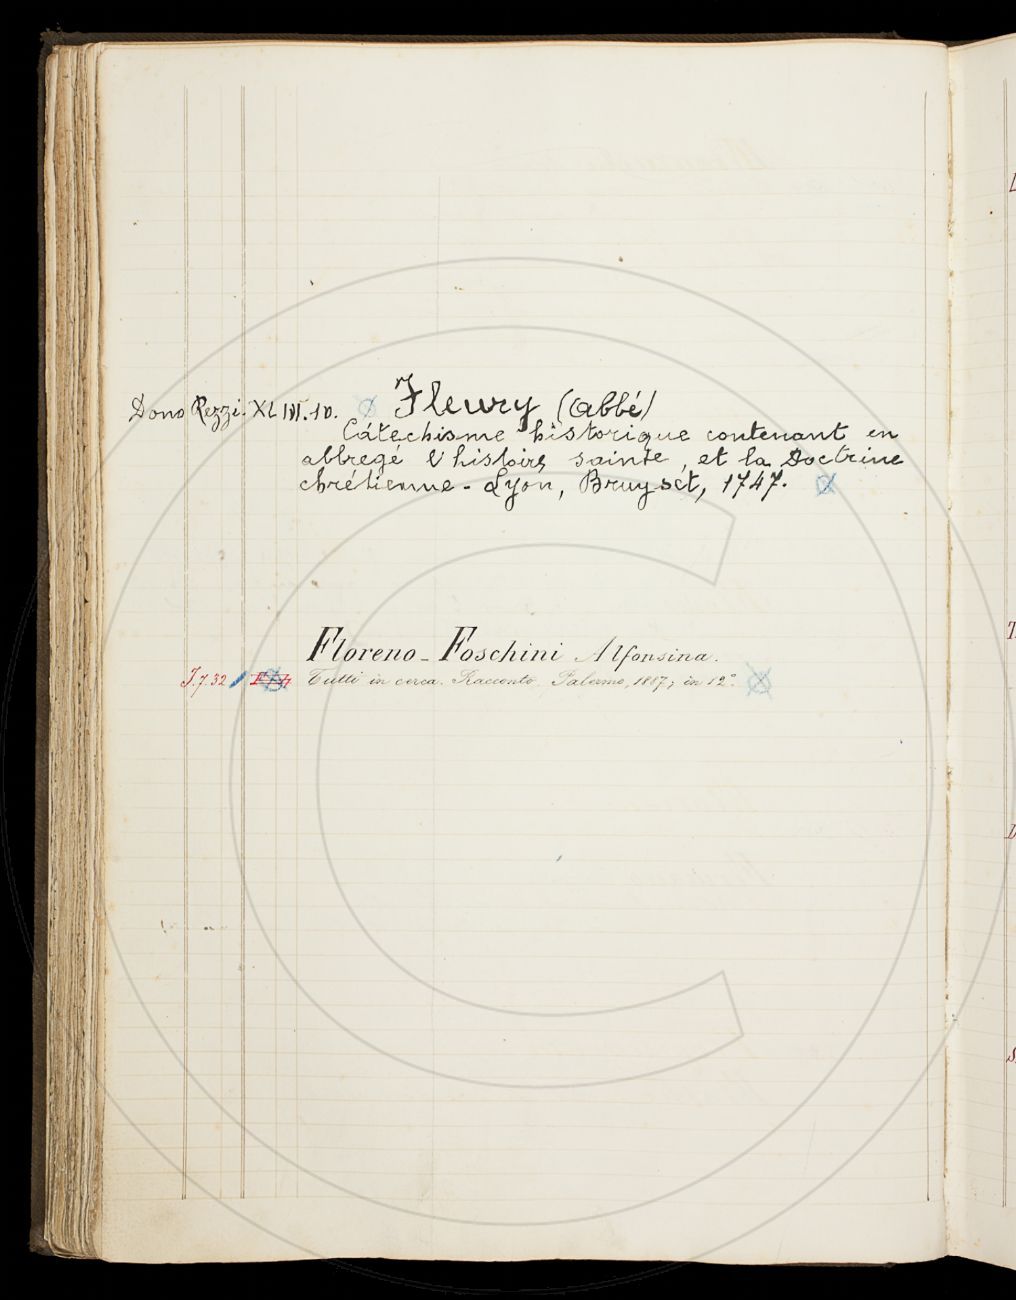 Dono Pezzi. XLIII.10. Fleury (abbé)
Cátechisme historique contenant en
abbregé l'histoire sainte, et la Doctrine
chrétienne - Lyon, Bruyset, 1747.
Floreno-Foschini Alfonsina.
I.7.32 Tutti in cerca. Racconto. Palermo, 1887; in 12°.